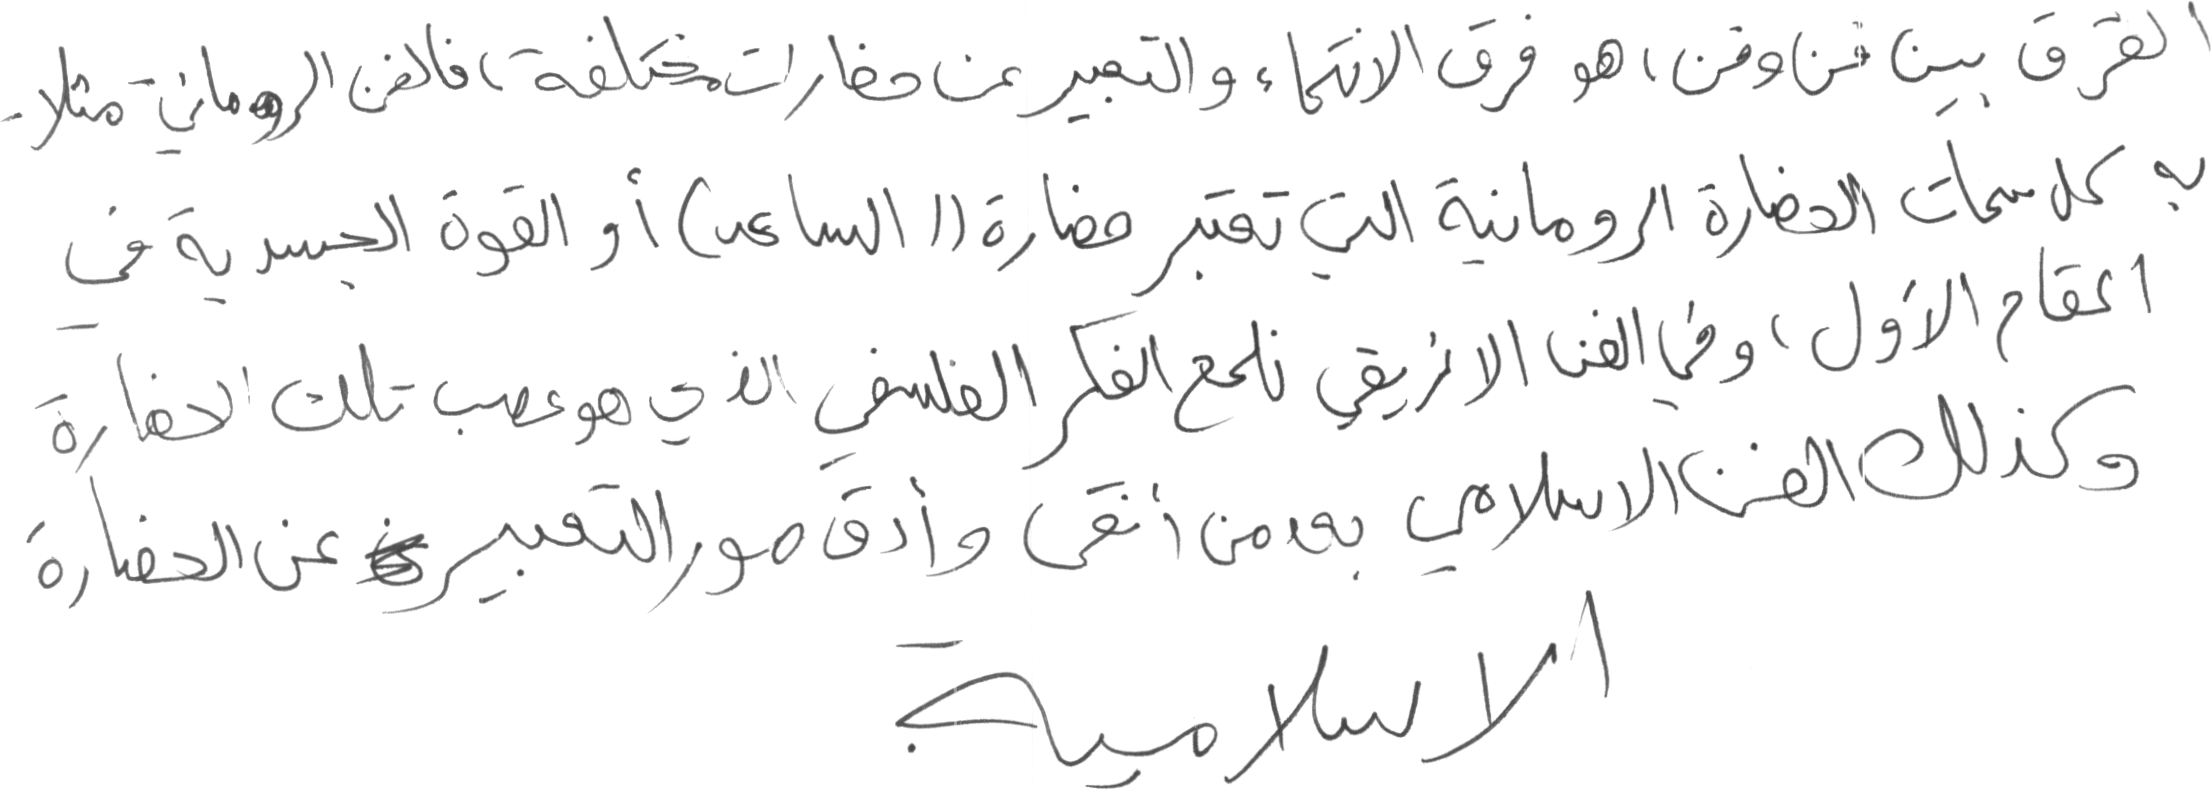 الفرق بين فن وفن، هو فرق الانتماء والتعبير عن حضارات مختلفة، فالفن الروماني مثلا -
به كل سمات الحضارة الرومانية التي تعتبر حضارة ((الساعد) أو القوة الجسدية في
المقام الأول، وفي الفن الاغريقي نلمح الفكر الفلسفي الذي هو عصب تلك الحضارة
وكذلك الفن الاسلامي يعد من أنقى وأدق صور التعبير عن الحضارة
الاسلامية